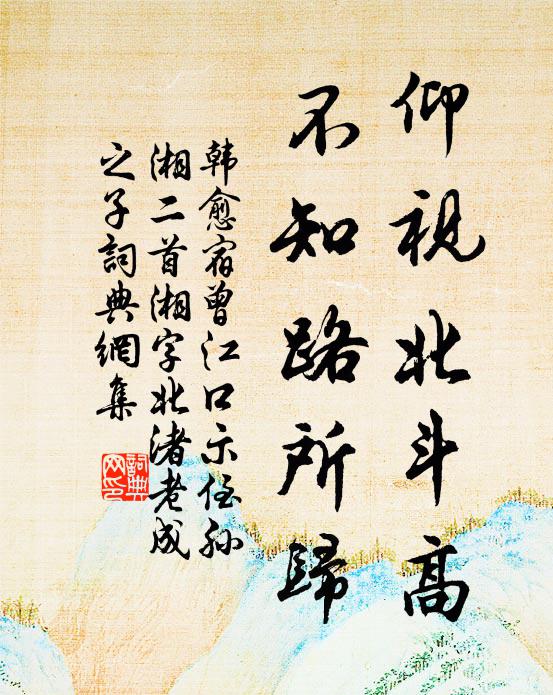 仰視北斗高
不知路所歸
韩愈宿曾江口示侄孫
湘二首湘字北渚老成
之子詞典網集
詞典
网印